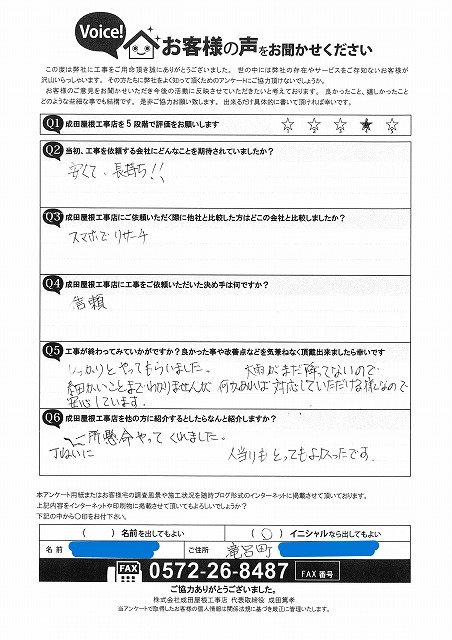 Voice!
お客様の声をお聞かせください
この度は弊社に工事をご用命頂き誠にありがとうございました。世の中には弊社の存在やサービスをご存知ないお客様が
沢山いらっしゃいます。その方たちに弊社をよく知って頂くためのアンケートにご協力頂けないでしょうか。
お客様のご意見をお聞かせいただき今後の活動に反映させていただきたいと考えております。良かったこと、嬉しかったこと
どのような些細な事でも結構です。是非ご協力お願い致します。出来るだけ具体的に書いて頂ければ幸いです。
Q1 成田屋根工事店を5段階で評価をお願いします ☆ ☆ ☆ ★ ☆
Q2 当初、工事を依頼する会社にどんなことを期待されていましたか?
安くて、長持ち!!
Q3 成田屋根工事店にご依頼いただく際に他社と比較した方はどこの会社と比較しましたか?
スマホでリサーチ
Q4 成田屋根工事店に工事をご依頼いただいた決め手は何ですか?
信頼
Q5 工事が終わってみていかがですか?良かった事や改善点などを気兼ねなく頂戴出来ましたら幸いです
しっかりとやってもらいました。 大雨がまだ降ってないので
細かいことまでわかりませんが 何かあれば対応していただける様なので
安心しています。
Q6 成田屋根工事店を他の方に紹介するとしたらなんと紹介しますか?
一所懸命やってくれました。
丁ねいに 人当りもとってもよかったです。
本アンケート用紙またはお客様宅の調査風景や施工状況を随時ブログ形式のインターネットに掲載させて頂いております。
上記内容をインターネットや印刷物に掲載させて頂いてもよろしいでしょうか?
下記の中から〇印をお付下さい。
( )名前を出してもよい (〇)イニシャルなら出してもよい
名前 ご住所 滝呂町
FAX 0572-26-8487 FAX番号
ご協力ありがとうございました。
株式会社成田屋根工事店 代表取締役 成田篤孝
当アンケートで取得したお客様の個人情報は関係法規に基づき厳正に管理いたします。